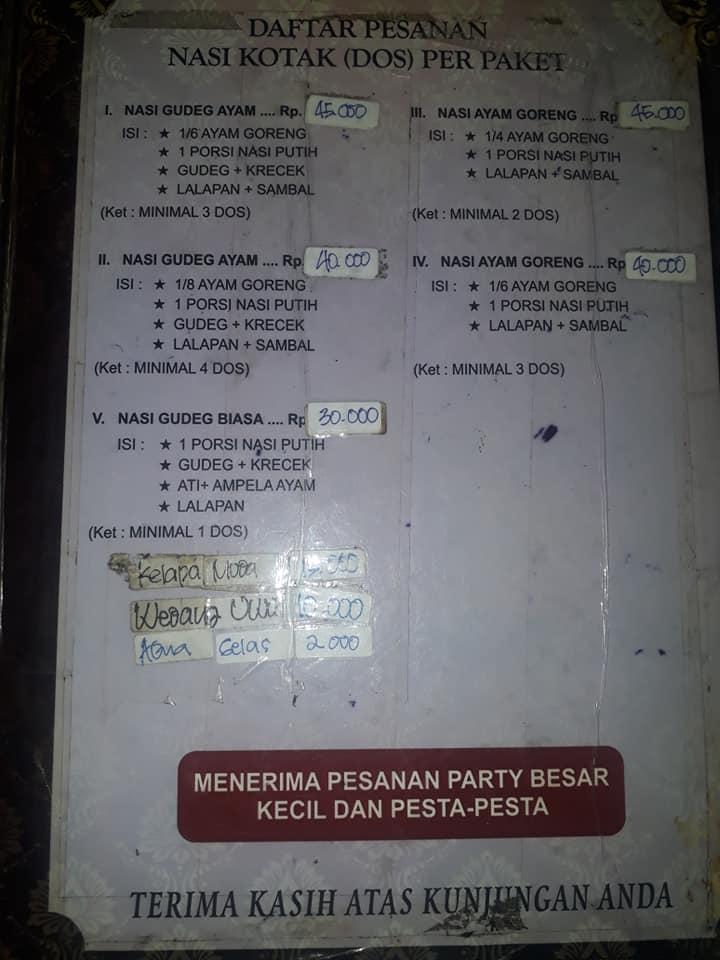 DAFTAR PESANAN
NASI KOTAK (DOS) PER PAKET
I. NASI GUDEG AYAM .... Rp. 45.000
ISI : ★ 1/6 AYAM GORENG
★ 1 PORSI NASI PUTIH
★ GUDEG + KRECEK
★ LALAPAN + SAMBAL
(Ket : MINIMAL 3 DOS)
II. NASI GUDEG AYAM .... Rp. 40.000
ISI : ★ 1/8 AYAM GORENG
★ 1 PORSI NASI PUTIH
★ GUDEG + KRECEK
★ LALAPAN + SAMBAL
(Ket : MINIMAL 4 DOS)
V. NASI GUDEG BIASA .... Rp 30.000
ISI : ★ 1 PORSI NASI PUTIH
★ GUDEG + KRECEK
★ ATI+ AMPELA AYAM
★ LALAPAN
(Ket : MINIMAL 1 DOS)
Kelapa Muda
Wedang Uwu 10.000
Aqua Gelas 2.000
III. NASI AYAM GORENG .... Rp 45.000
ISI : ★ 1/4 AYAM GORENG
★ 1 PORSI NASI PUTIH
★ LALAPAN + SAMBAL
(Ket : MINIMAL 2 DOS)
IV. NASI AYAM GORENG .... Rp 40.000
ISI : ★ 1/6 AYAM GORENG
★ 1 PORSI NASI PUTIH
★ LALAPAN + SAMBAL
(Ket : MINIMAL 3 DOS)
MENERIMA PESANAN PARTY BESAR
KECIL DAN PESTA-PESTA
TERIMA KASIH ATAS KUNJUNGAN ANDA